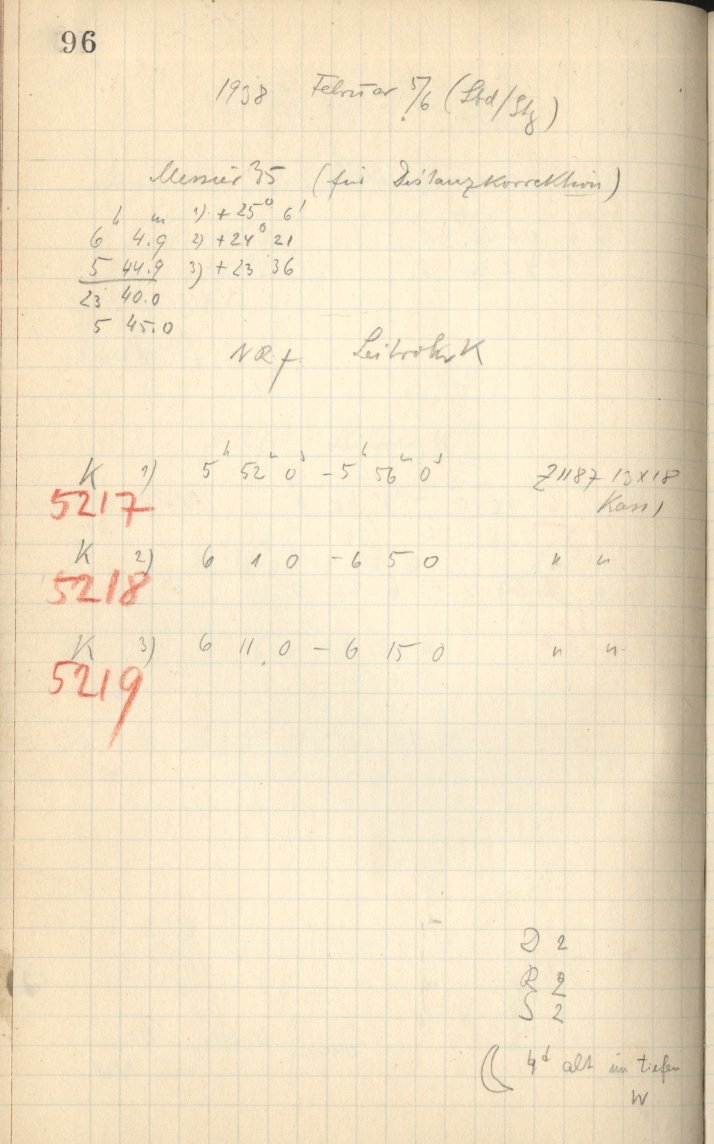 96
1938 Februar 5/6 (Sbd/Stg)
Messier 35 (für Distanzkorrektion)
h m 1) +25° 6'
6 4.9 2) +24° 21
5 44.9 3) +23 36
23 40.0
5 45.0
Leitrohr K
K 1) 5h 52m 0s - 5h 56m 0s Z1187 13x18
5217 Kass 1
K 2) 6 1 0 - 6 5 0 " "
5218
K 3) 6 11 0 - 6 15 0 " "
5219
D 2
R 2
S 2
☾ 4d alt im tiefen
W